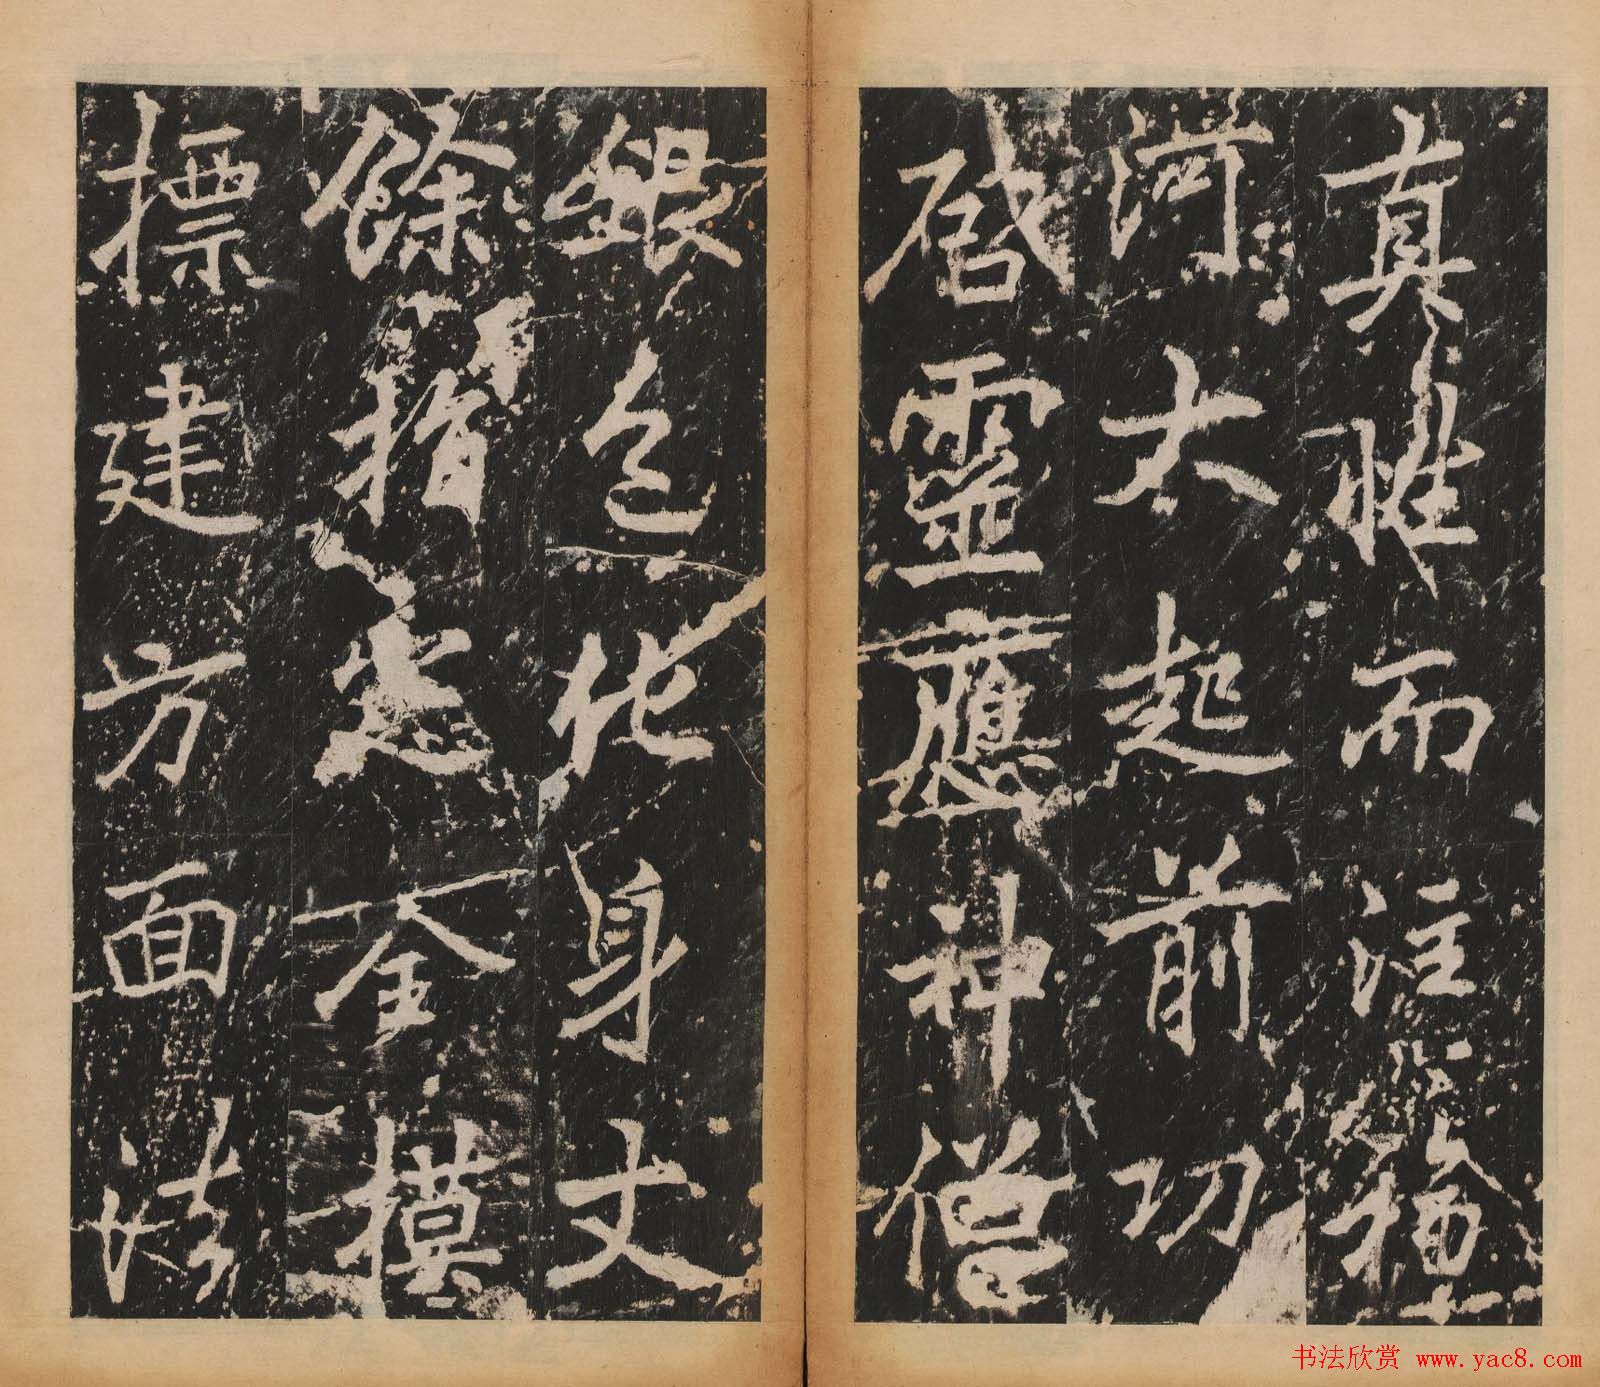 真性而注福
河大起前功
啟靈應神僧
銀色化身丈
餘指定全模
標建方面法
书法欣赏 www.yac8.com